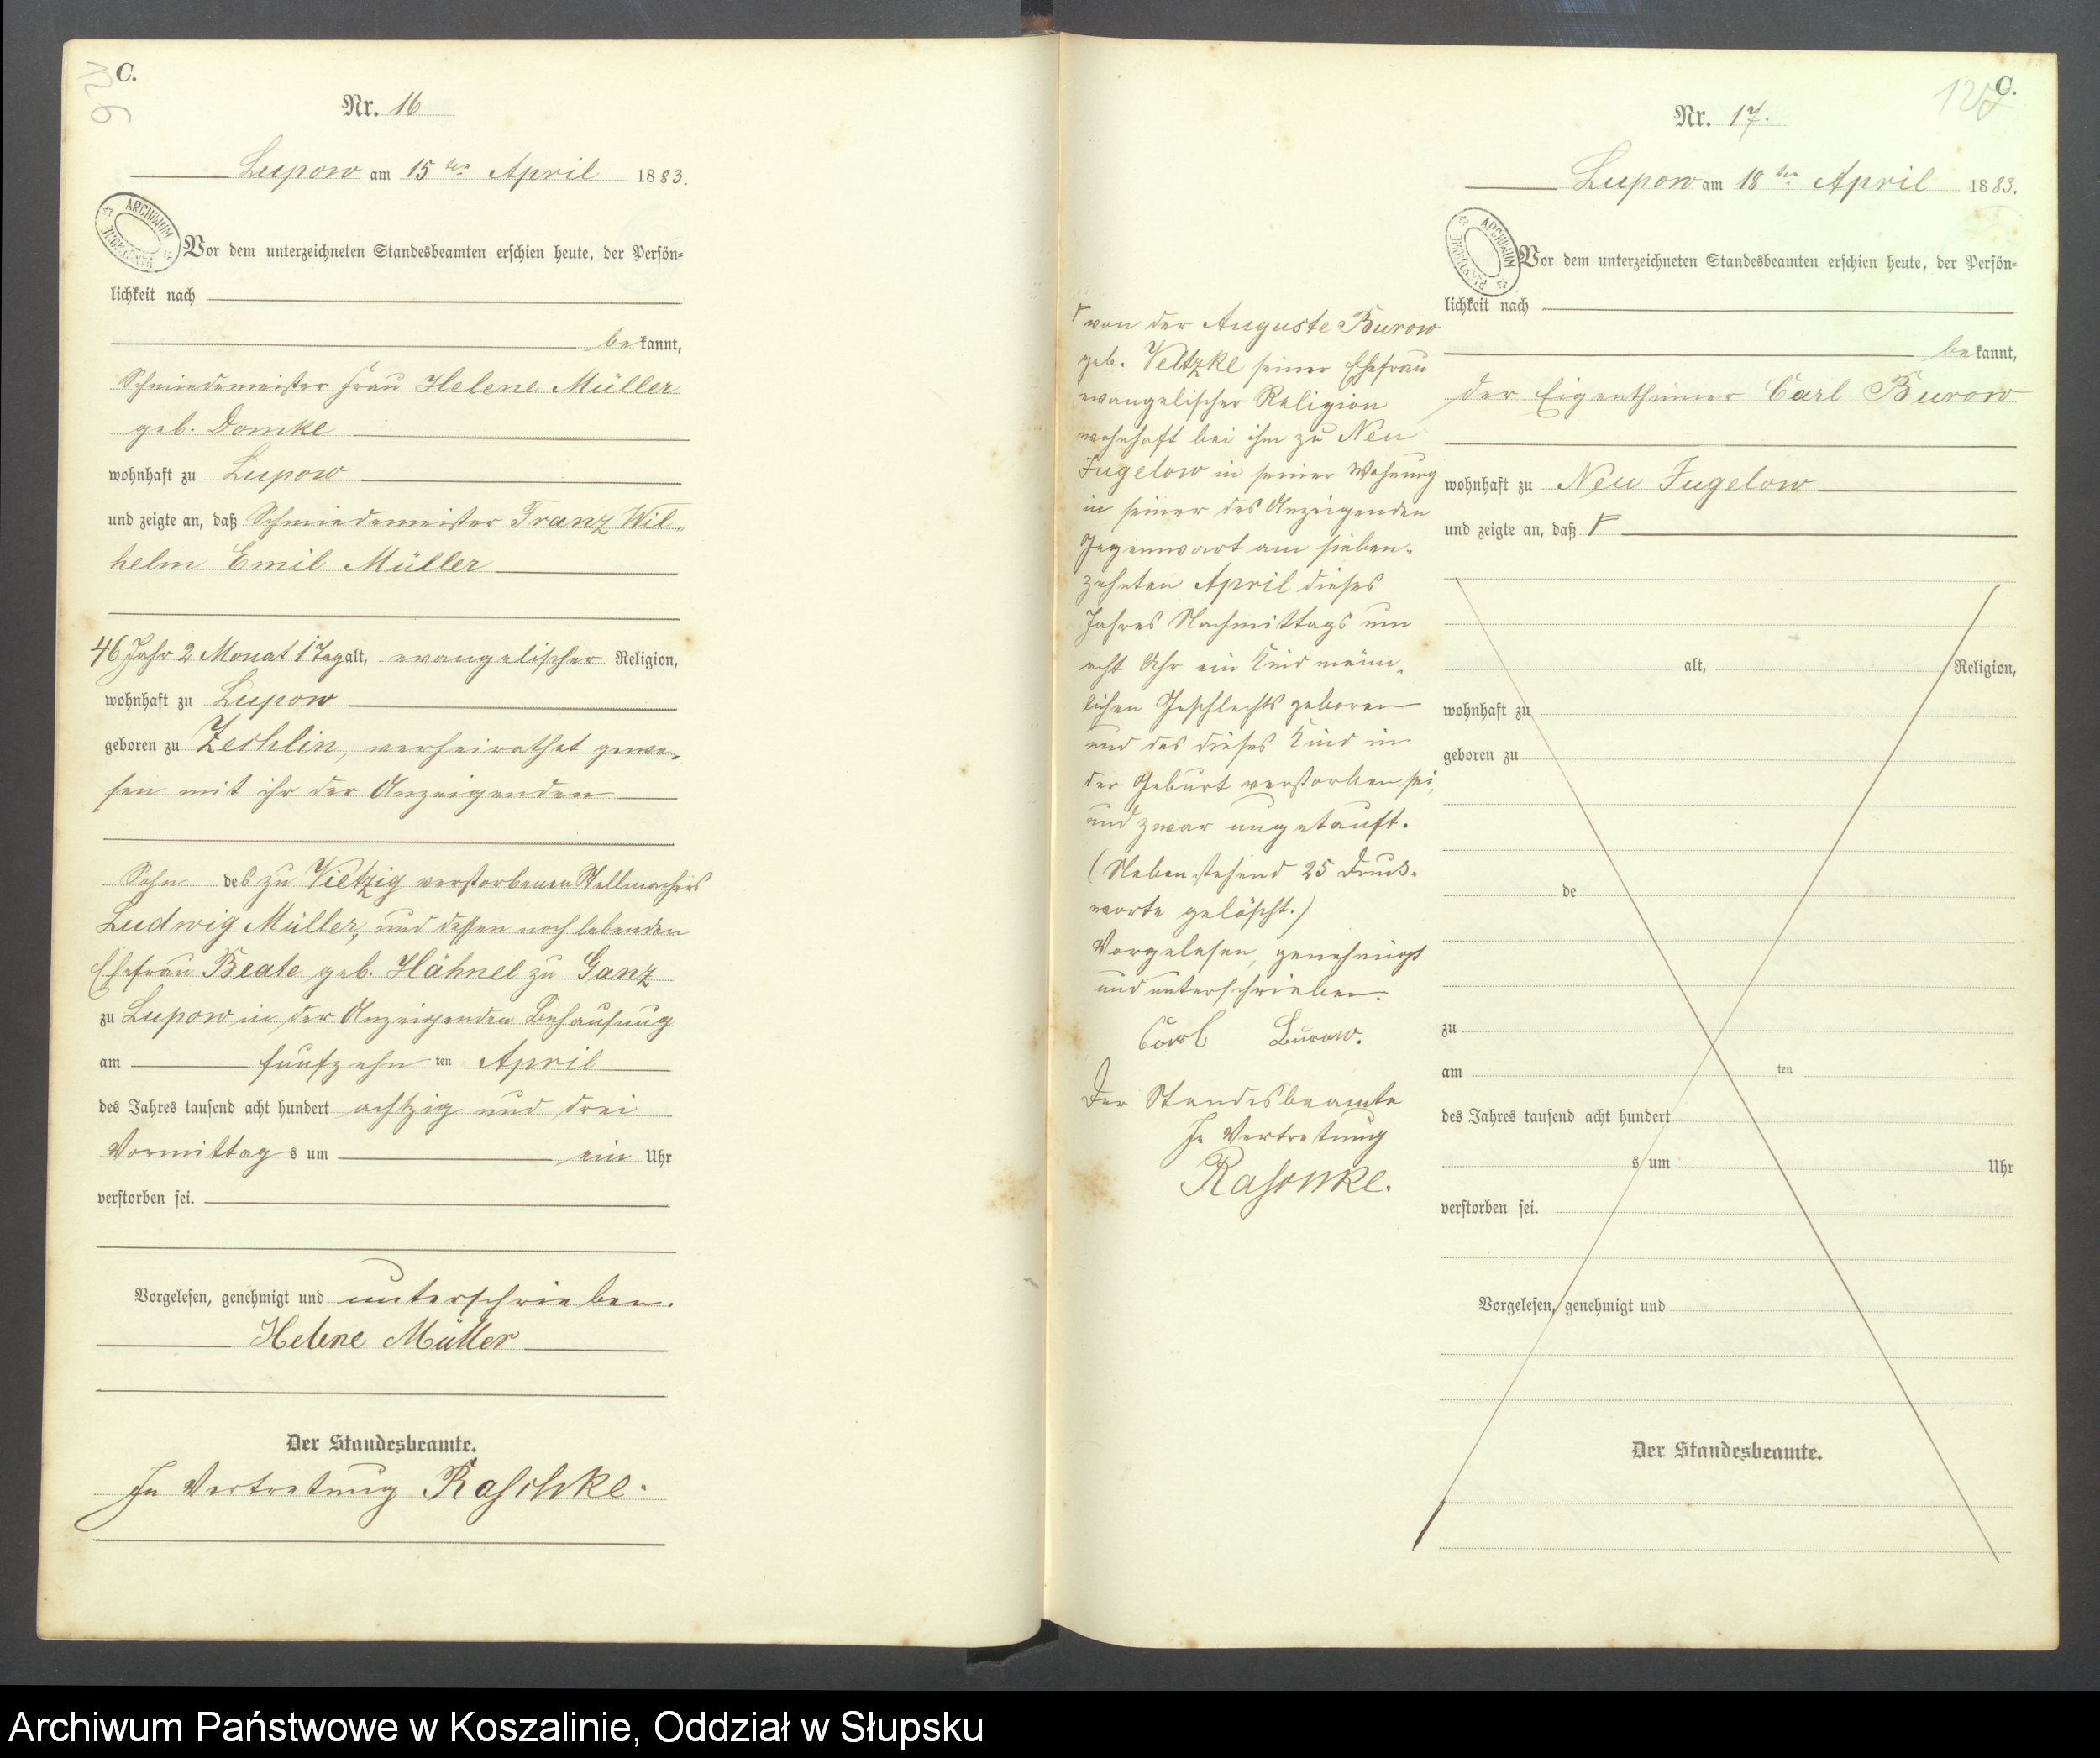 C.
Nr. 16
Lupow am 15 ten April 1883.
ARCHIWUM
Vor dem unterzeichneten Standesbeamten erschien heute, der Persön-
lichkeit nach
bekannt,
Schmiedemeister Frau Helene Müller
geb. Domke
wohnhaft zu Lupow
und zeigte an, daß Schmiedemeister Franz Wil-
helm Emil Müller
46 Jahr 2 Monat 1 Tag alt, evangelischer Religion,
wohnhaft zu Lupow
geboren zu Zechlin, verheirathet gewe-
sen mit ihr der Anzeigenden
Sohn des zu Vietzig verstorbenen Stellmachers
Ludwig Müller, und dessen noch lebenden
Ehefrau Beate geb. Hähnel zu Ganz
zu Lupow in der Anzeigenden Behausung
am fünfzehn ten April
des Jahres tausend acht hundert achtzig und drei
Vormittag s um ein Uhr
verstorben sei.
Vorgelesen, genehmigt und unterschrieben.
Helene Müller
Der Standesbeamte.
In Vertretung Raschke.
C.
Nr. 17.
Lupow am 18 ten April 1883.
ARCHIWUM
Vor dem unterzeichneten Standesbeamten erschien heute, der Persön-
lichkeit nach
bekannt,
der Eigenthümer Carl Burow
wohnhaft zu Neu Jugelow
und zeigte an, daß
alt, Religion,
wohnhaft zu
geboren zu
de
zu
am ten
des Jahres tausend acht hundert
s um Uhr
verstorben sei.
Vorgelesen, genehmigt und
Der Standesbeamte.
von der Auguste Burow
geb. Veltzke seiner Ehefrau
evangelischer Religion
wohnhaft bei ihm zu Neu
Jugelow in seiner Wohnung
in seiner des Anzeigenden
Gegenwart am sieben-
zehnten April dieses
Jahres Nachmittags um
acht Uhr ein Kind männ-
lichen Geschlechts geboren
und das dieses Kind in
der Geburt verstorben sei,
und zwar ungetauft.
(Nebenstehend 25 Druck-
worte gelöscht.)
Vorgelesen, genehmigt
und unterschrieben.
Carl Burow.
Der Standesbeamte
In Vertretung
Raschke.
Archiwum Państwowe w Koszalinie, Oddział w Słupsku